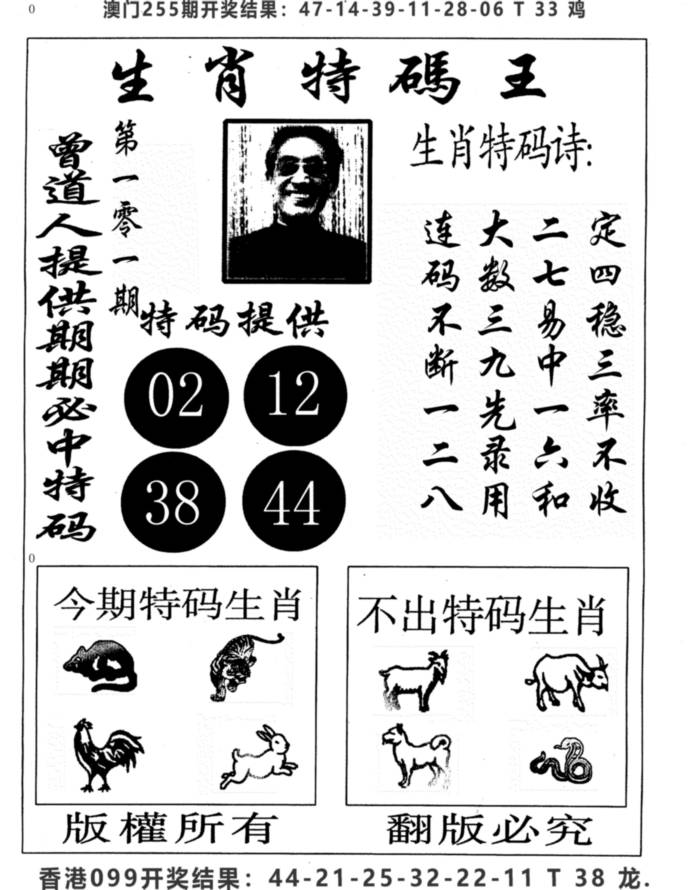 0
澳门255期开奖结果：47-14-39-11-28-06 T 33 鸡
生肖特碼王
曾道人提供期期必中特码
第一零一期
生肖特码诗:
定四稳三率不收
二七易中一六和
大数三九先录用
连码不断一二八
特码提供
02
12
38
44
0
今期特码生肖
不出特码生肖
版權所有
翻版必究
香港099开奖结果：44-21-25-32-22-11 T 38 龙.